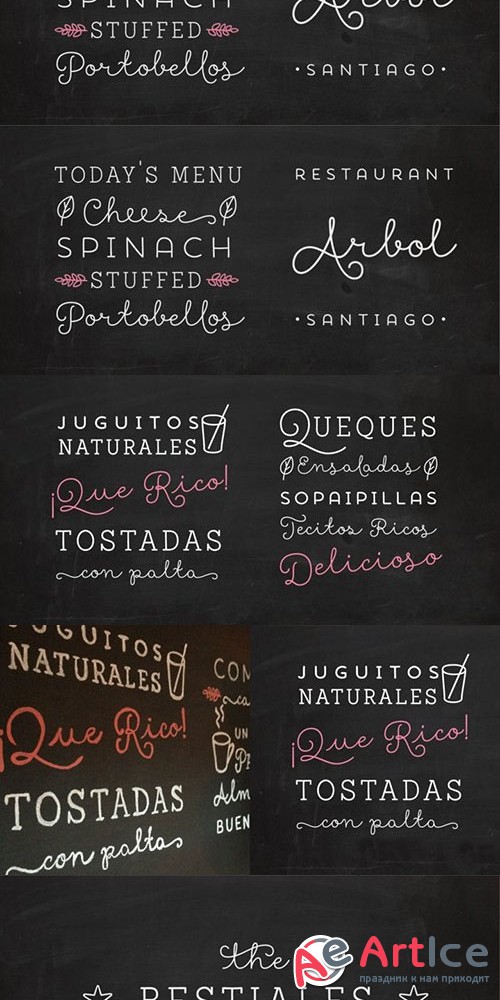 SPINACH
STUFFED
Portobellos
Arbol
•SANTIAGO•
TODAY'S MENU
Cheese
SPINACH
STUFFED
Portobellos
RESTAURANT
Arbol
•SANTIAGO•
JUGUITOS
NATURALES
¡Que Rico!
TOSTADAS
con palta
QUEQUES
Ensaladas
SOPAIPILLAS
Tecitos Ricos
Delicioso
JUGUITOS
NATURALES
¡Que Rico!
TOSTADAS
con palta
COM
ca
UN
Pe
Alm
BUEN
JUGUITOS
NATURALES
¡Que Rico!
TOSTADAS
con palta
the
BESTIALES
ArtIce
праздник к нам приходит